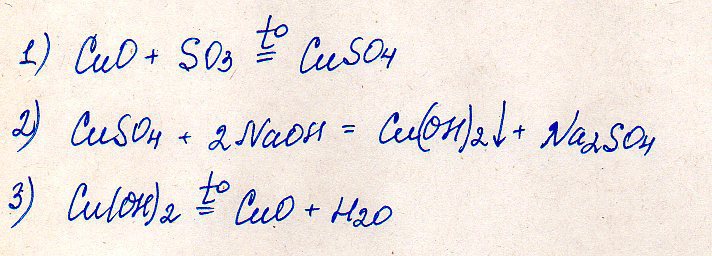 1) CuO + SO3 t°= CuSO4
2) CuSO4 + 2NaOH = Cu(OH)2↓ + Na2SO4
3) Cu(OH)2 t°= CuO + H2O